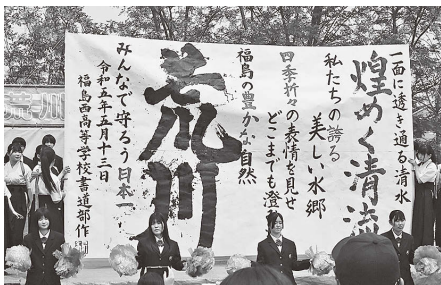 一面に透き通る清水
煌めく清流
私たちの誇る
美しい水郷
四季折々の表情を見せ
どこまでも澄
福島の豊かな自然
荒川
みんなで守ろう日本一
令和五年五月十三日
福島西高等学校書道部作
荒川